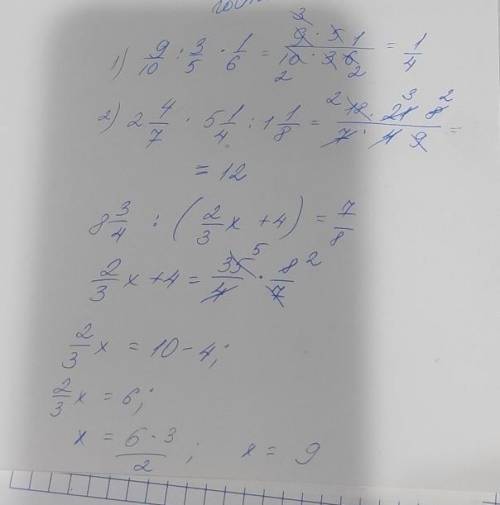 1) 9/10 : 3/5 · 1/6 = (9 · 5 · 1)/(10 · 3 · 6) = 1/4
2) 2 4/7 · 5 1/4 : 1 1/8 = (18 · 21 · 8)/(7 · 4 · 9) =
= 12
8 3/4 : (2/3 x + 4) = 7/8
2/3 x + 4 = 35/4 · 8/7
2/3 x = 10 - 4;
2/3 x = 6;
x = (6 · 3)/2 ; x = 9